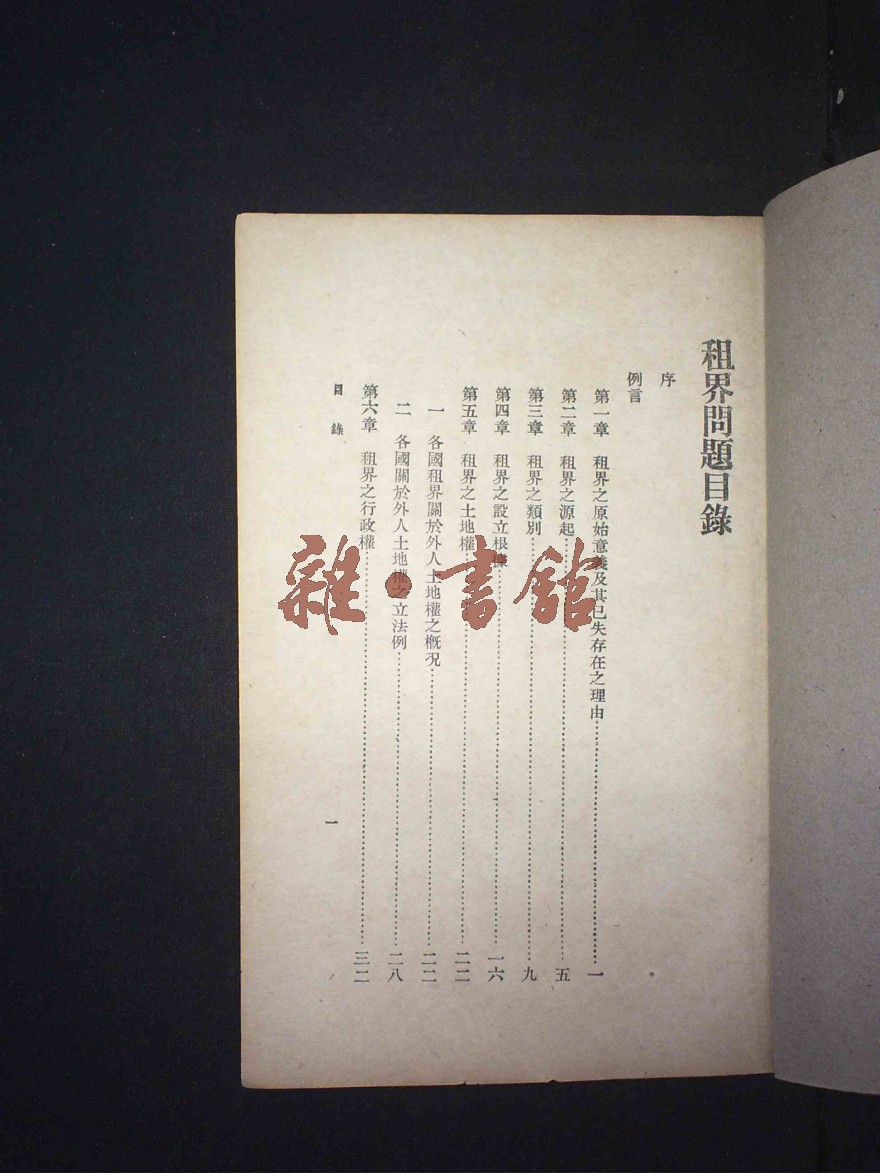 租界問題目錄
序
例言
第一章 租界之原始意義及其已失存在之理由……一
第二章 租界之源起……五
第三章 租界之類別……九
第四章 租界之設立根據……一六
第五章 租界之土地權……二二
一 各國租界關於外人土地權之概況……二二
二 各國關於外人土地權之立法例……二八
第六章 租界之行政權……三二
目錄
一
雜·書館